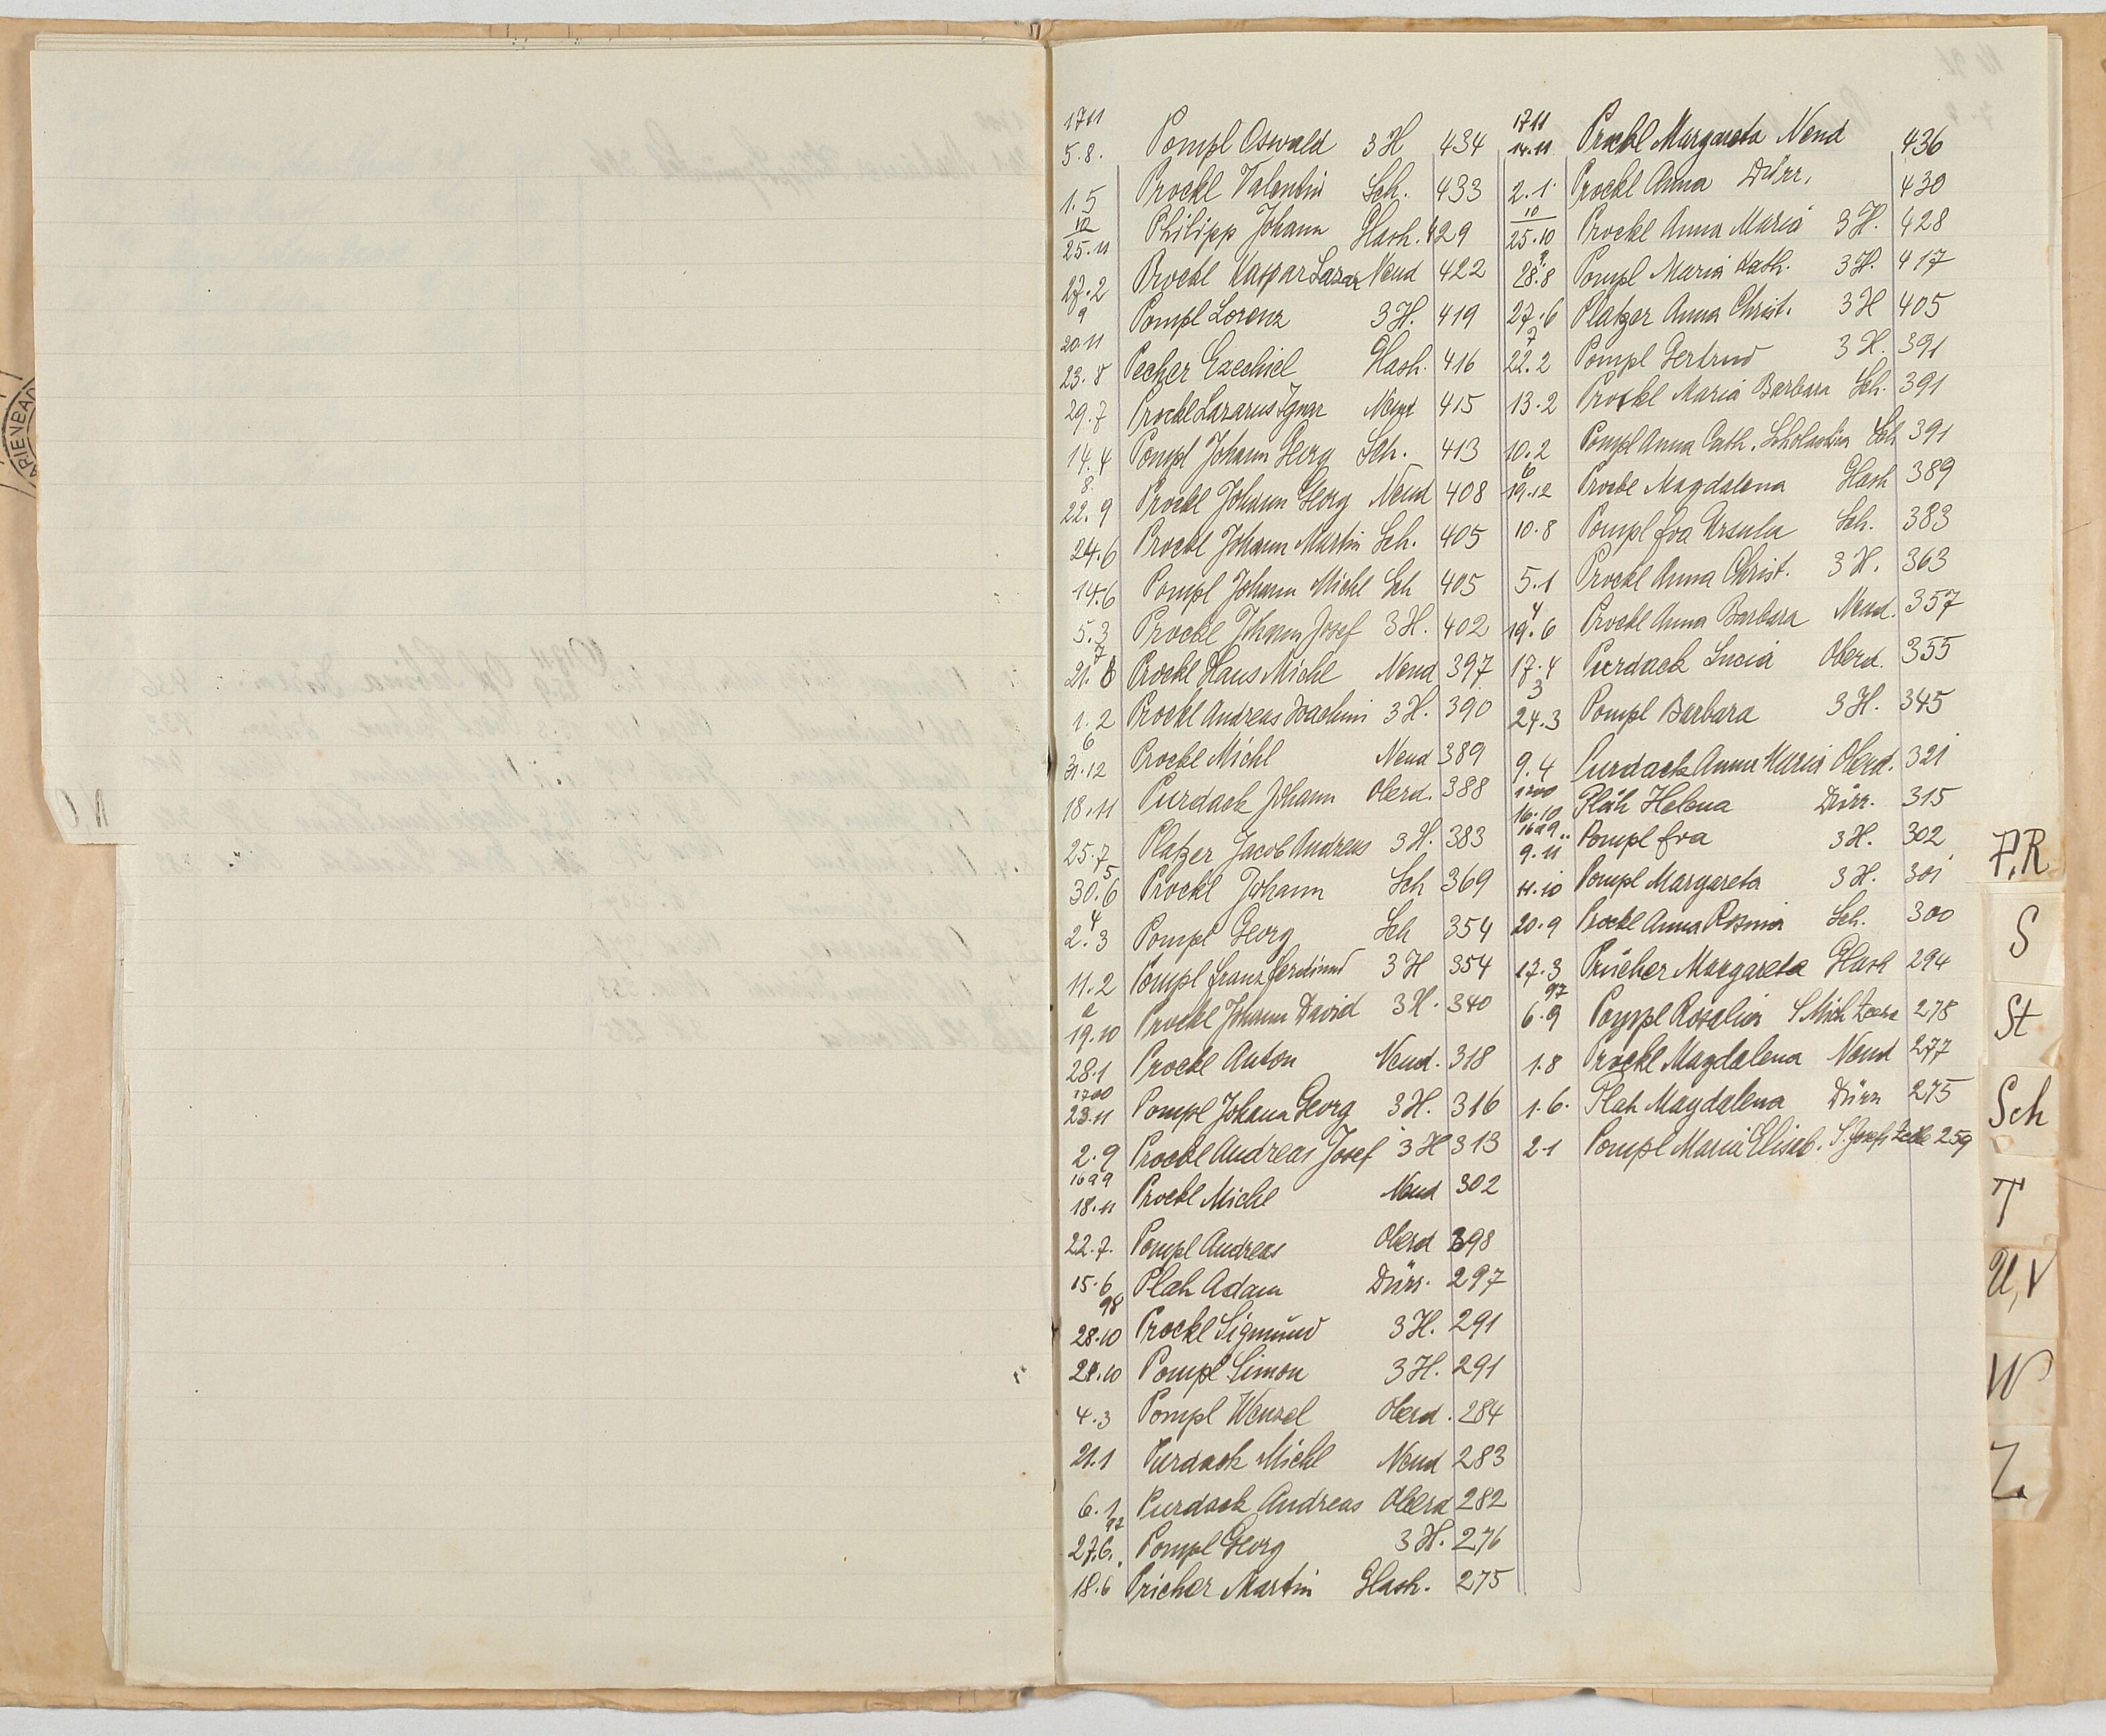 1711
5.8. Pompl Oswald 3 H 434
1.5 Prockl Valentin Sch. 433
10
25.11 Philipp Johann Glash. 429
27.2 Prockl Kaspar Lazar Neud 422
9
20.11 Pompl Lorenz 3 H. 419
23.8 Pecher Ezechiel Glash. 416
29.7 Prockl Lazarus Ignaz Neud 415
14.4 Pompl Johann Georg Sch. 413
8.
22.9 Prockl Johann Georg Neud 408
24.6 Prockl Johann Martin Sch. 405
14.6 Pompl Johann Michl Sch 405
5.3 Prockl Johann Josef 3 H. 402
7
21.8 Prockl Hans Michl Neud 397
1.2 Prockl Andreas Joachim 3 H. 390
6
31.12 Prockl Michl Neud 389
18.11 Purdack Johann Oberd. 388
25.7 Platzer Jacob Andreas 3 H. 383
5
30.6 Prockl Johann Sch 369
4
2.3 Pompl Georg Sch 354
11.2 Pompl Franz Ferdinand 3 H 354
2
19.10 Prockl Johann David 3 H. 340
28.1 Prockl Anton Neud. 318
1700
23.11 Pompl Johann Georg 3 H. 316
2.9 Prockl Andreas Josef 3 H 313
1699
18.11 Prockl Michl Neud 302
22.7. Pompl Andreas Oberd 298
15.6 Plah Adam Dürr. 297
98
28.10 Prockl Sigmund 3 H. 291
28.10 Pompl Simon 3 H. 291
4.3 Pompl Wenzel Oberd. 284
21.1 Purdack Michl Neud 283
6.1 Purdack Andreas Oberd 282
97
27.6. Pompl Georg 3 H. 276
18.6 Pricher Martin Glash. 275
1711
14.11 Prockl Margareta Neud 436
2.1. Prockl Anna Dürr. 430
10
25.10 Prockl Anna Maria 3 H. 428
9
28.8 Pompl Maria Kath. 3 H. 417
27.6 Platzer Anna Christ. 3 H 405
7
22.2 Pompl Gertrud 3 H. 391
13.2 Prockl Maria Barbara Sch. 391
10.2 Pompl Anna Cath. Scholastica Sch 391
6
19.12 Prockl Magdalena Glash 389
10.8 Pompl Eva Ursula Sch. 383
5.1 Prockl Anna Christ. 3 H. 363
4
19.6 Prockl Anna Barbara Neud. 357
17.4 Purdack Lucia Oberd. 355
3
24.3 Pompl Barbara 3 H. 345
9.4 Purdack Anna Maria Oberd. 321
1700
16.10 Plah Helena Dürr. 315
1699
9.11 Pompl Eva 3 H. 302
11.10 Pompl Margareta 3 H. 301
20.9 Prockl Anna Rosina Sch. 300
17.3 Pricher Margareta Glash 294
97
6.9 Pompl Rosalia S. Mich Zeche 278
1.8 Prockl Magdalena Neud 277
1.6. Plah Magdalena Dürr 275
2.1 Pompl Maria Elisab. S. Josefs Zeche 259
P,R
S
St
Sch
T
U,V
W
Z.